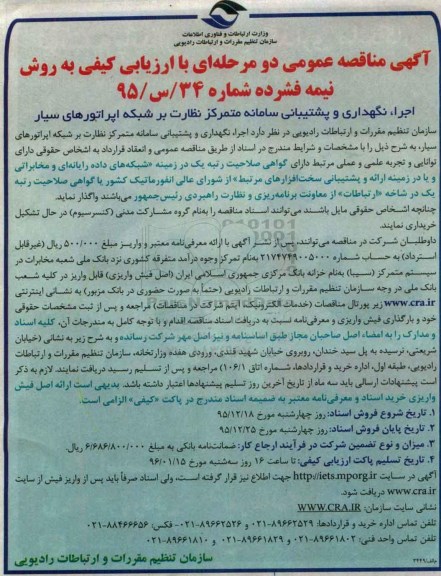 وزارت ارتباطات و فناوری اطلاعات
سازمان تنظیم مقررات و ارتباطات رادیویی
آگهی مناقصه عمومی دو مرحله‌ای با ارزیابی کیفی به روش
نیمه فشرده شماره ۳۴/س/۹۵
اجرا، نگهداری و پشتیبانی سامانه متمرکز نظارت بر شبکه اپراتورهای سیار
سازمان تنظیم مقررات و ارتباطات رادیویی در نظر دارد اجرا، نگهداری و پشتیبانی سامانه متمرکز نظارت بر شبکه اپراتورهای
سیار، به شرح ذیل را با مشخصات و شرایط مندرج در اسناد از طریق مناقصه عمومی و انعقاد قرارداد به اشخاص حقوقی دارای
توانایی و تجربه علمی و عملی مرتبط دارای گواهی صلاحیت رتبه یک در زمینه «شبکه‌های داده رایانه‌ای و مخابراتی
و یا در زمینه ارائه و پشتیبانی سخت‌افزارهای مرتبط» از شورای عالی انفورماتیک کشور یا گواهی صلاحیت رتبه
یک در شاخه «ارتباطات» از معاونت برنامه‌ریزی و نظارت راهبردی رئیس‌جمهور می‌باشند واگذار نماید.
چنانچه اشخاص حقوقی مایل باشند می‌توانند اسناد مناقصه را به‌نام گروه مشارکت مدنی (کنسرسیوم) در حال تشکیل
خریداری نمایند.
داوطلبان شرکت در مناقصه می‌توانند، پس از نشر آگهی با ارائه معرفی‌نامه معتبر و واریز مبلغ ۵۰۰/۰۰۰ ریال (غیرقابل
استرداد) به حساب شماره ۲۱۷۴۷۴۹۰۰۵۰۰۰ به‌نام تمرکز وجوه درآمد متفرقه کشوری نزد بانک ملی شعبه مخابرات در
سیستم متمرکز (سیبا) به‌نام خزانه بانک مرکزی جمهوری اسلامی ایران (اصل فیش واریزی) قابل واریز در کلیه شعب
بانک ملی در وجه سازمان تنظیم مقررات و ارتباطات رادیویی (حتماً به صورت حضوری در بانک مزبور) به نشانی اینترنتی
www.cra.ir زیر پورتال مناقصات (خدمات الکترونیک، آیتم شرکت در مناقصات) مراجعه و پس از ثبت مشخصات حقوقی
خود و بارگذاری فیش واریزی و معرفی‌نامه نسبت به دریافت اسناد مناقصه اقدام و با توجه کامل به مندرجات آن، کلیه اسناد
و مدارک را به امضاء اصل صاحبان مجاز طبق اساسنامه و نیز اصل مهر شرکت رسانده و به شرح زیر به نشانی (خیابان
شریعتی، نرسیده به پل سید خندان، روبروی خیابان شهید قندی، ورودی هفده وزارتخانه، سازمان تنظیم مقررات و ارتباطات
رادیویی، طبقه اول، اداره خرید و قراردادها، شماره اتاق ۱۰۶/۱) مراجعه و پس از تسلیم رسید دریافت نمایند. لازم به ذکر
است پیشنهادات ارسالی باید سه ماه از تاریخ آخرین روز تسلیم پیشنهادها اعتبار داشته باشد. بدیهی است ارائه اصل فیش
واریزی خرید اسناد و معرفی‌نامه معتبر به ضمیمه اسناد مندرج در پاکت «کیفی» الزامی است.
۱. تاریخ شروع فروش اسناد: روز چهارشنبه مورخ ۹۵/۱۲/۱۸
۲. تاریخ پایان فروش اسناد: روز چهارشنبه مورخ ۹۵/۱۲/۲۵
۳. میزان و نوع تضمین شرکت در فرآیند ارجاع کار: ضمانت‌نامه بانکی به مبلغ ۶/۶۸۶/۸۰۰/۰۰۰ ریال.
۴. تاریخ تسلیم پاکت ارزیابی کیفی: تا ساعت ۱۶ روز سه‌شنبه مورخ ۹۶/۰۱/۱۵
آگهی در سایت http://iets.mporg.ir جهت اطلاع نیز قرار گرفته است، ولی اسناد صرفاً باید پس از واریز فیش از سایت
www.cra.ir دریافت شود.
نشانی سایت سازمان: WWW.CRA.IR
تلفن تماس اداره خرید و قراردادها: ۸۹۶۶۲۵۲۹-۰۲۱ و ۸۹۶۶۲۵۲۶-۰۲۱ فکس: ۸۸۴۶۶۶۵۶-۰۲۱
تلفن تماس واحد فنی: ۸۹۶۶۱۸۰۲-۰۲۱ و ۸۹۶۶۱۸۲۹-۰۲۱ و ۸۹۶۶۱۸۱۰-۰۲۱
سازمان تنظیم مقررات و ارتباطات رادیویی